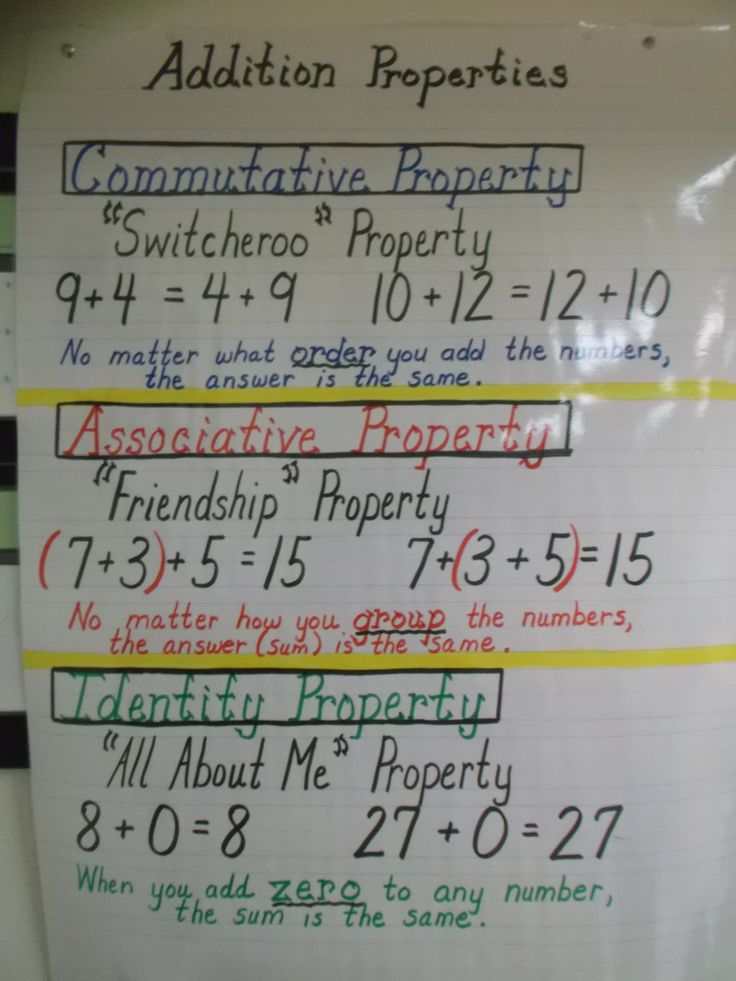 Addition Properties
Commutative Property
"Switcheroo" Property
9+4 = 4+9 10+12 = 12+10
No matter what order you add the numbers,
the answer is the same.
Associative Property
"Friendship" Property
(7+3)+5 =15 7+(3+5)=15
No matter how you group the numbers,
the answer (sum) is the same.
Identity Property
"All About Me" Property
8+0=8 27+0=27
When you add zero to any number,
the sum is the same.